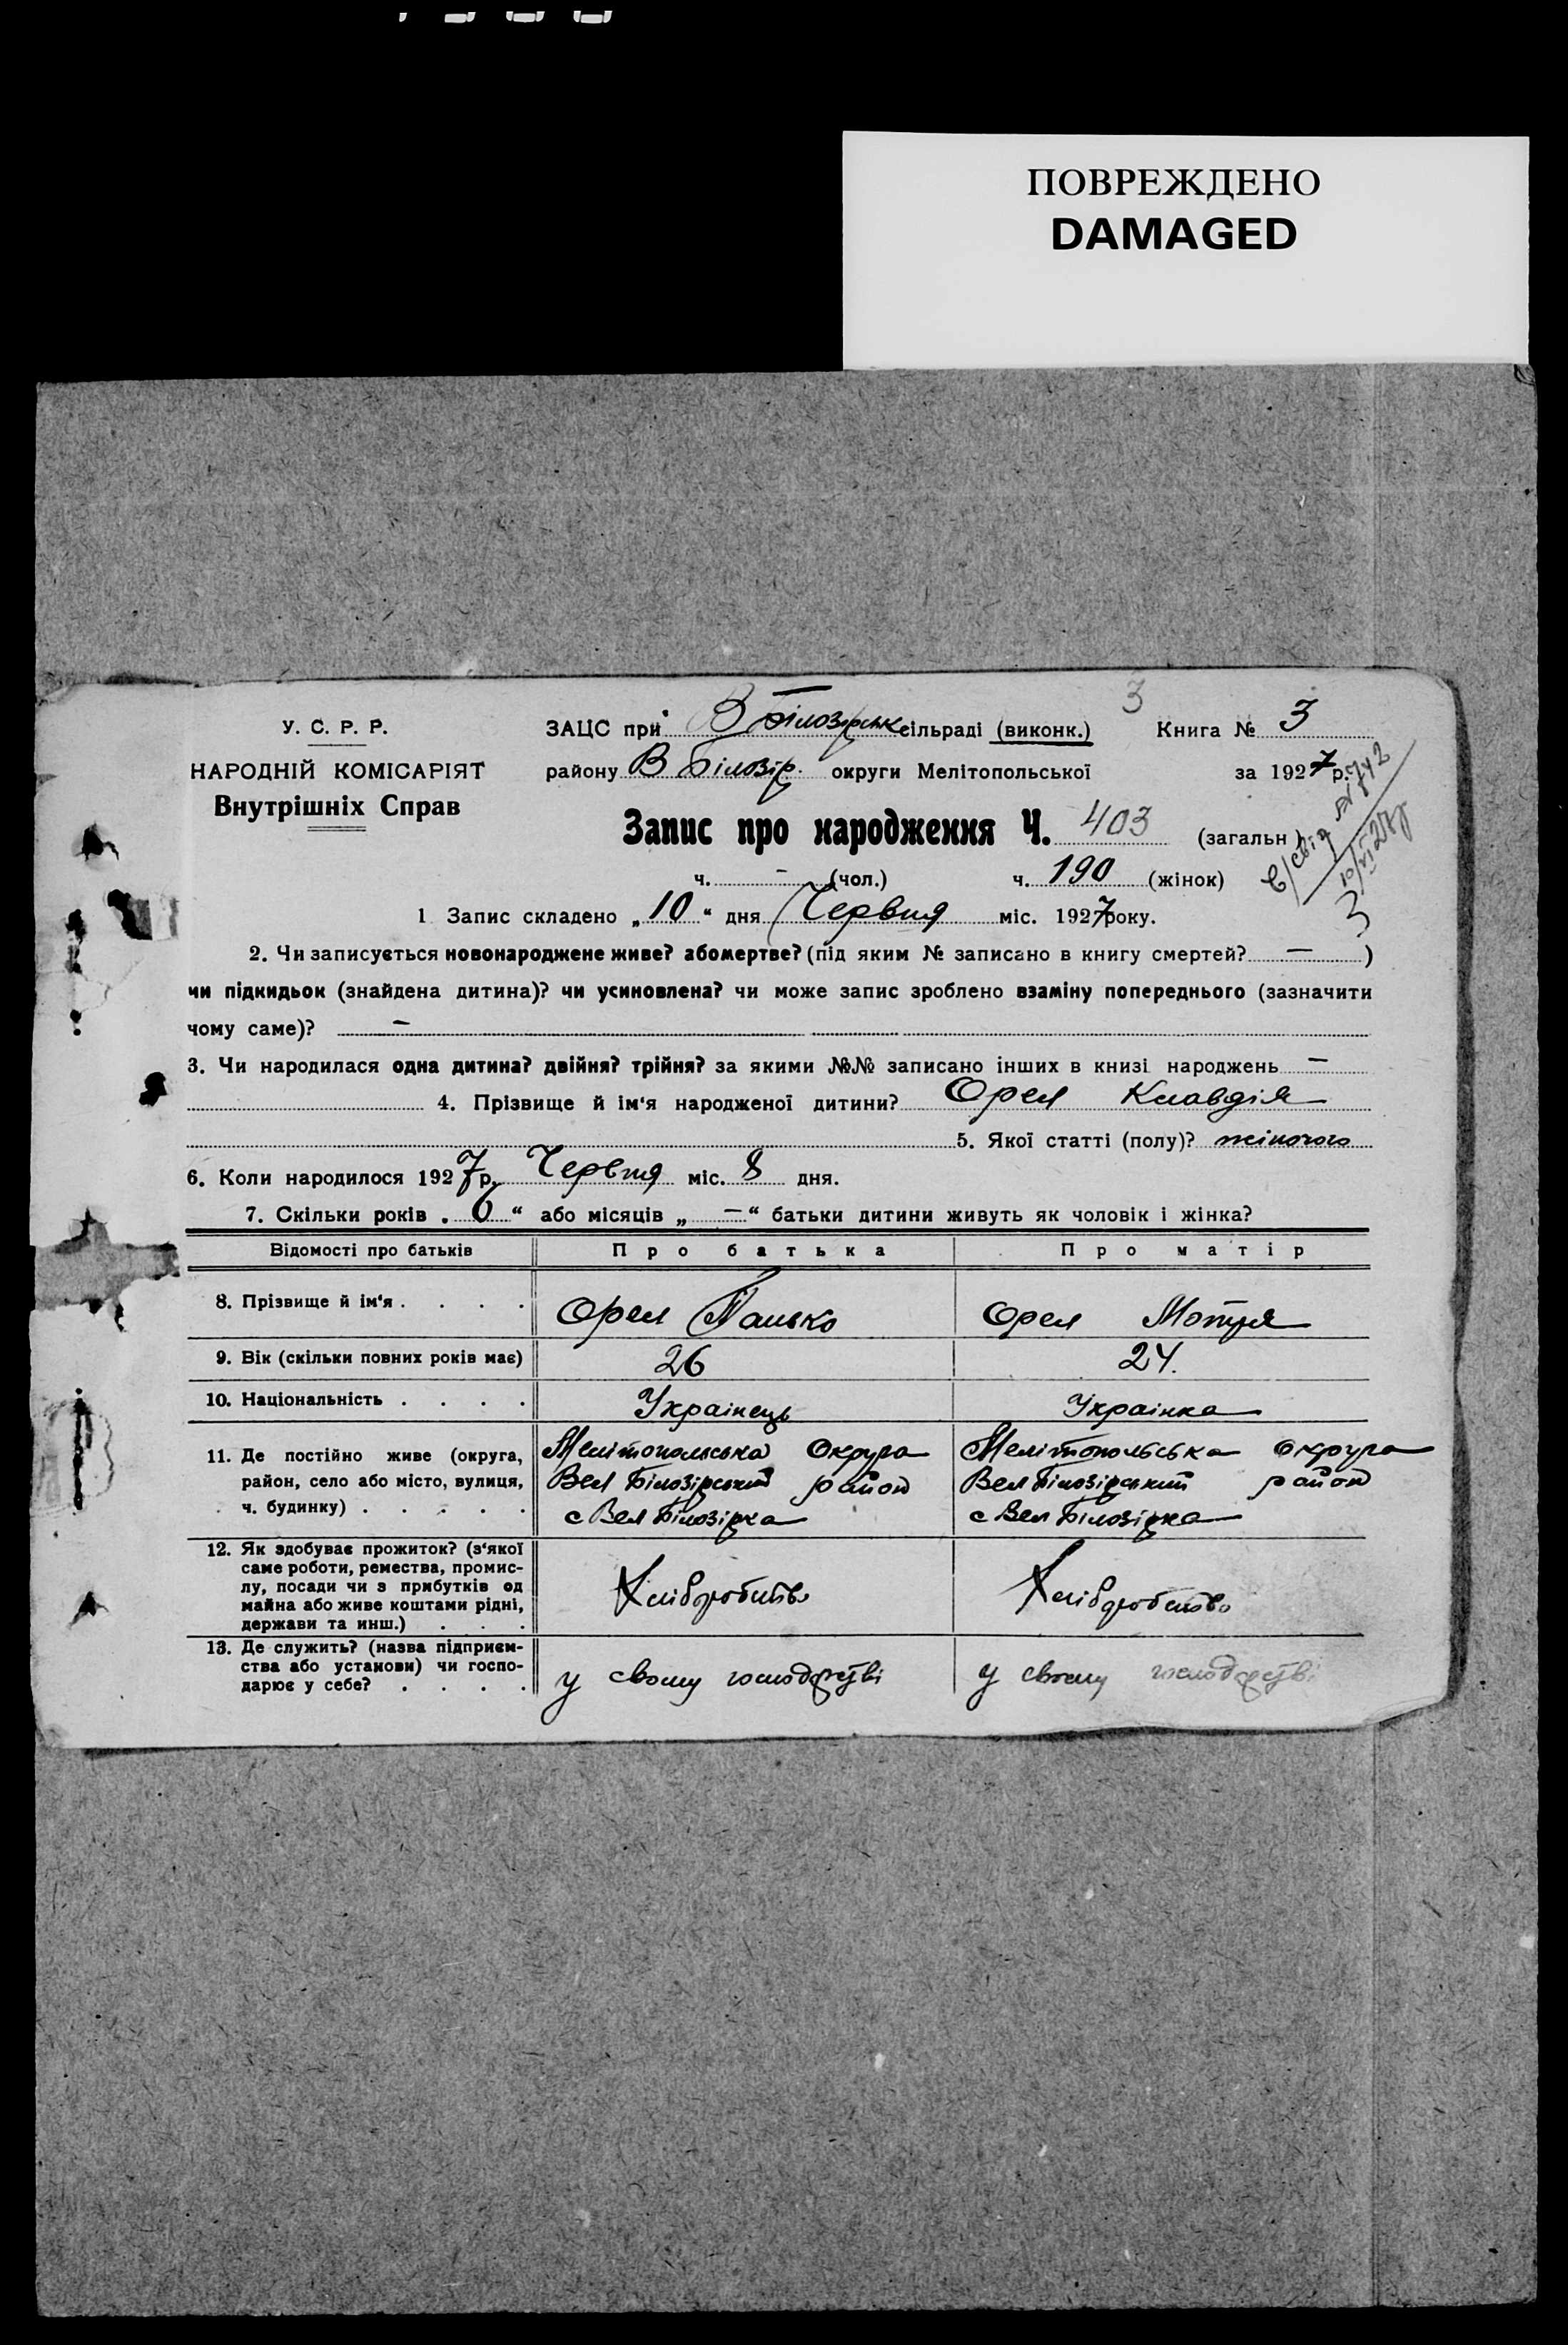 ПОВРЕЖДЕНО
DAMAGED
У. С. Р. Р.
НАРОДНІЙ КОМІСАРІЯТ
Внутрішніх Справ
ЗАЦС при В Білозірськ сільраді (виконк.) 3 Книга № 3
району В Білозір. округи Мелітопольської за 1927 р.
Запис про народження Ч. 403 (загальн.)
ч. - (чол.) ч. 190 (жінок)
10/VI 27 р
1 Запис складено „10“ дня Червня міс. 1927 року.
2. Чи записується новонароджене живе? або мертве? (під яким № записано в книгу смертей? — )
чи підкидьок (знайдена дитина)? чи усиновлена? чи може запис зроблено взаміну попереднього (зазначити
чому саме)? —
3. Чи народилася одна дитина? двійня? трійня? за якими №№ записано інших в книзі народжень —
4. Прізвище й ім‘я народженої дитини? Орел Клавдія
5. Якої статті (полу)? жіночого
6. Коли народилося 1927 р. Червня міс. 8 дня.
7. Скільки років „6“ або місяців „—“ батьки дитини живуть як чоловік і жінка?
Відомості про батьків Про батька Про матір
8. Прізвище й ім‘я . . . . Орел Панько Орел Мотря
9. Вік (скільки повних років має) 26 24.
10. Національність . . . . Українець Українка
11. Де постійно живе (округа, Мелітопольська Округа Мелітопольська округа
район, село або місто, вулиця, Вел Білозірський район Вел Білозірський район
ч. будинку) . . . . . с Вел Білозірка с Вел Білозірка
12. Як здобуває прожиток? (з‘якої
саме роботи, ремества, промис-
лу, посади чи з прибутків од Хліборобство Хліборобство
майна або живе коштами рідні,
держави та инш.) . . .
13. Де служить? (назва підприєм-
ства або установи) чи госпо- у свому господарстві у свому господарстві
дарює у себе? . . . .